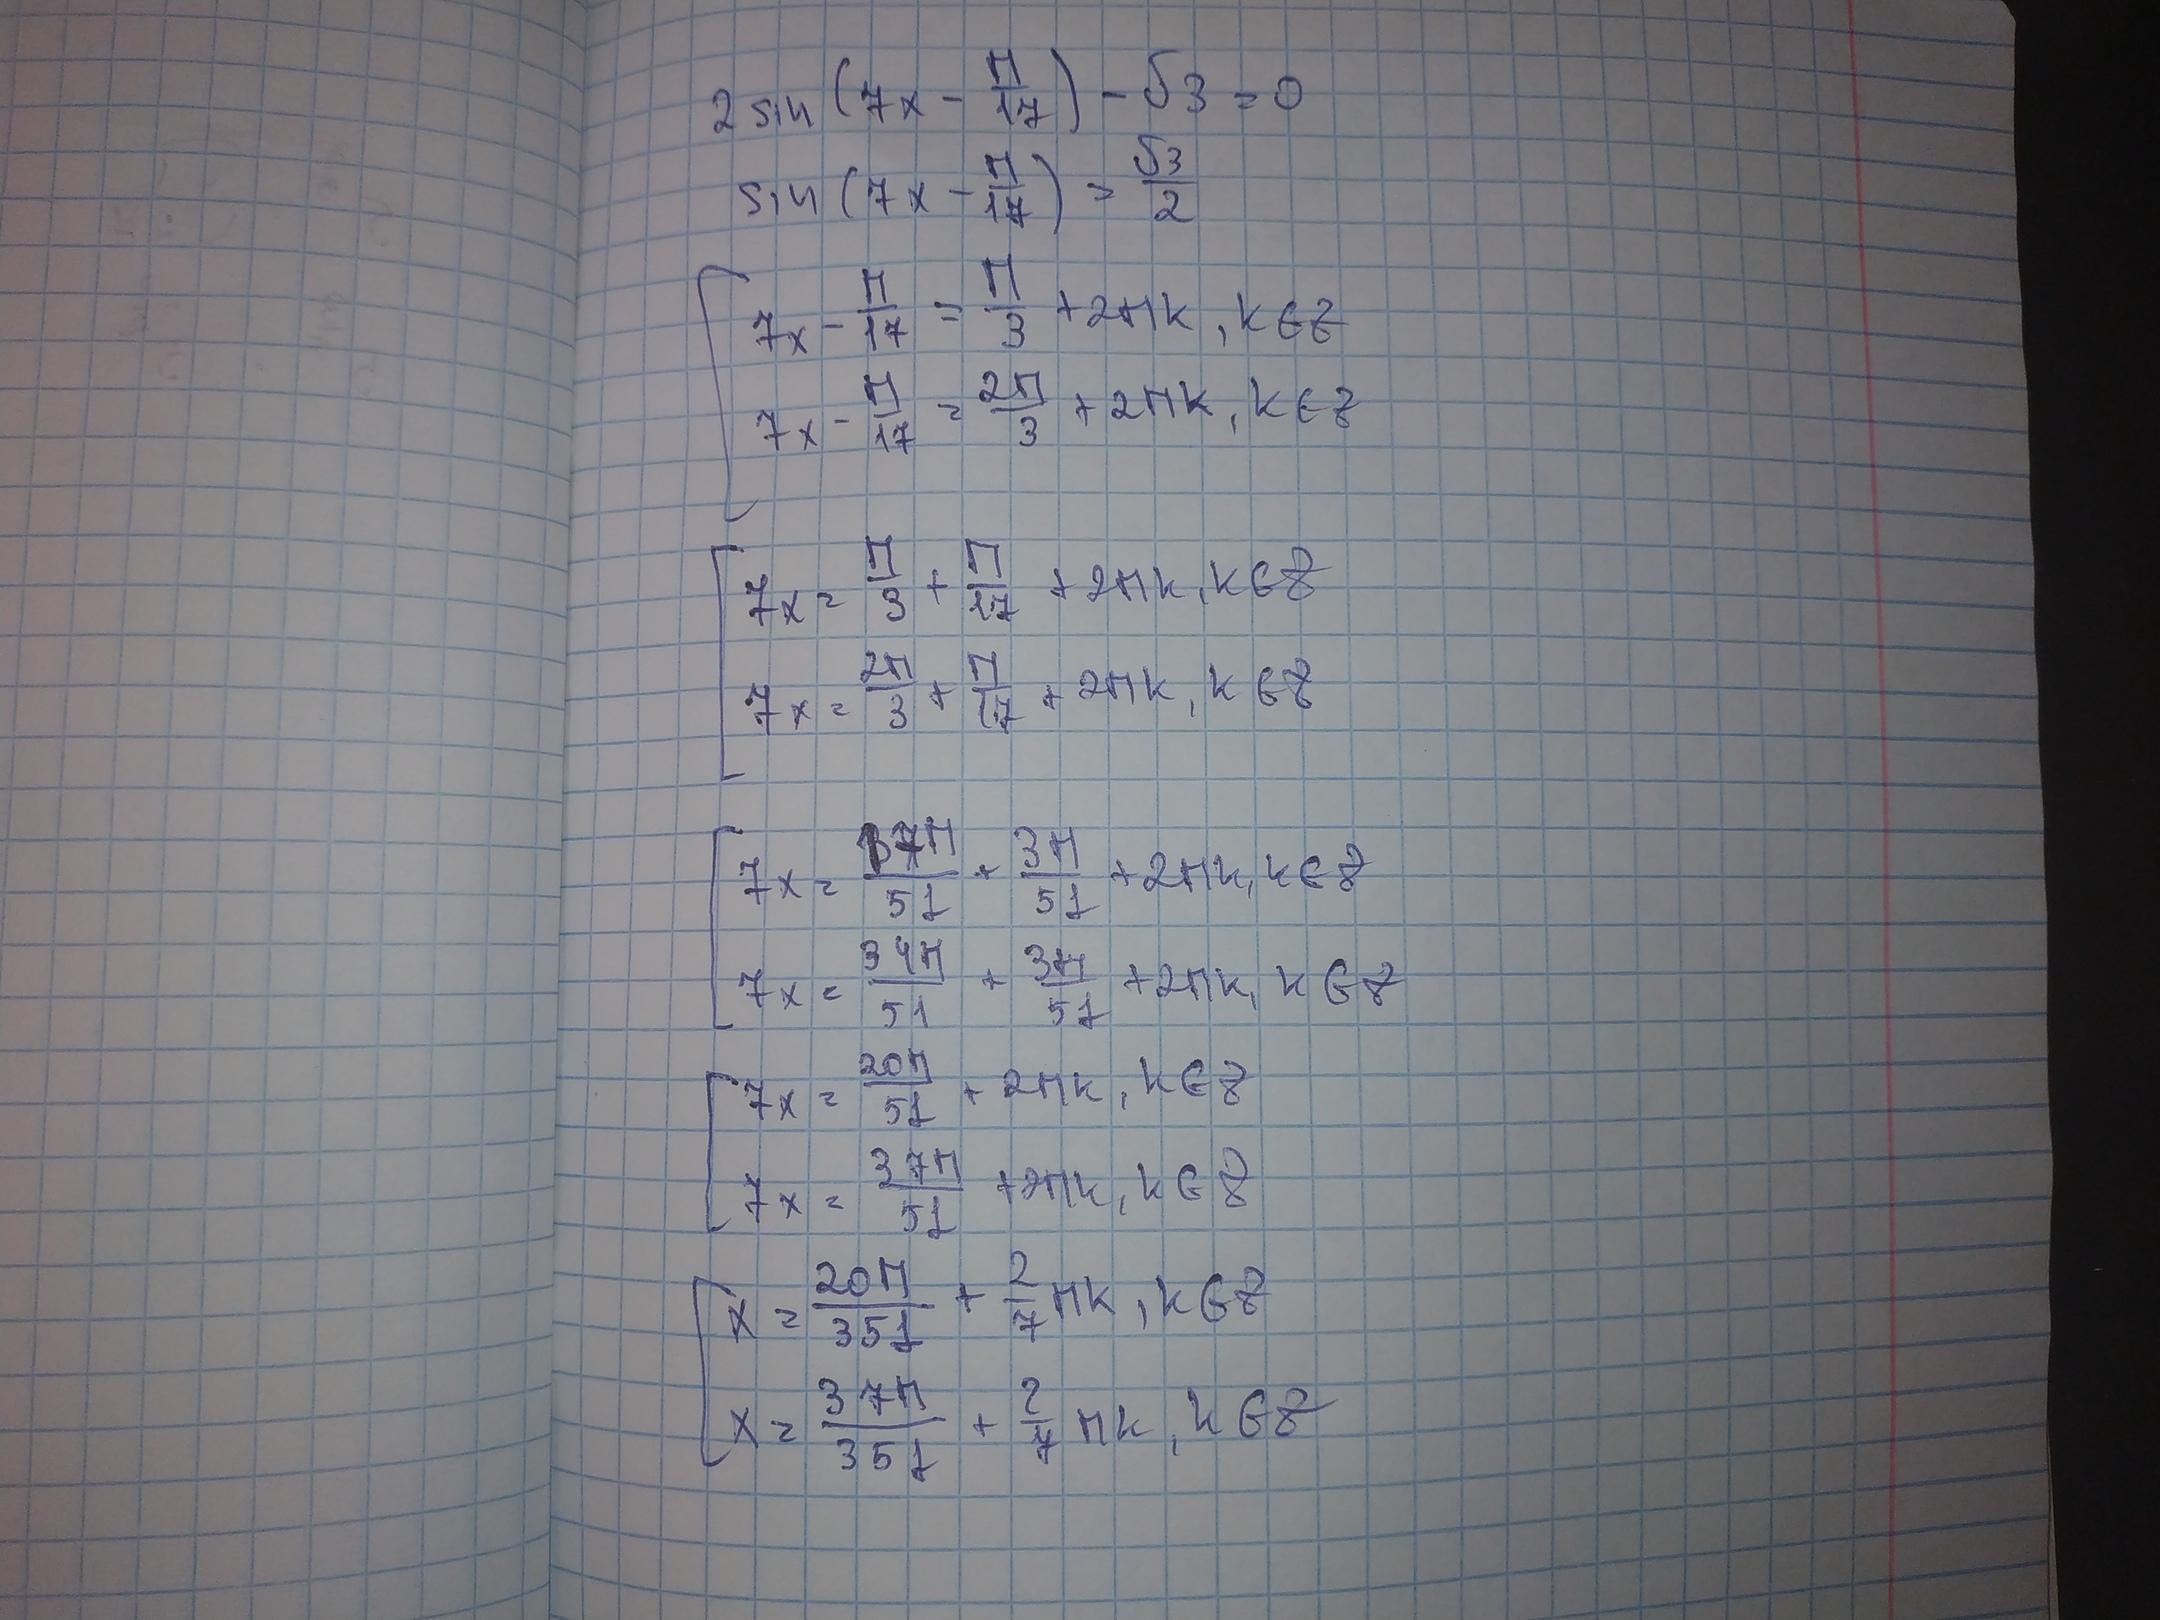 2 sin (7x - π/17) - √3 = 0
sin (7x - π/17) = √3/2
[ 7x - π/17 = π/3 + 2πk, k∈Z
7x - π/17 = 2π/3 + 2πk, k∈Z
[ 7x = π/3 + π/17 + 2πk, k∈Z
7x = 2π/3 + π/17 + 2πk, k∈Z
[ 7x = 17π/51 + 3π/51 + 2πk, k∈Z
7x = 34π/51 + 3π/51 + 2πk, k∈Z
[ 7x = 20π/51 + 2πk, k∈Z
7x = 37π/51 + 2πk, k∈Z
[ x = 20π/351 + 2/7 πk, k∈Z
x = 37π/351 + 2/7 πk, k∈Z